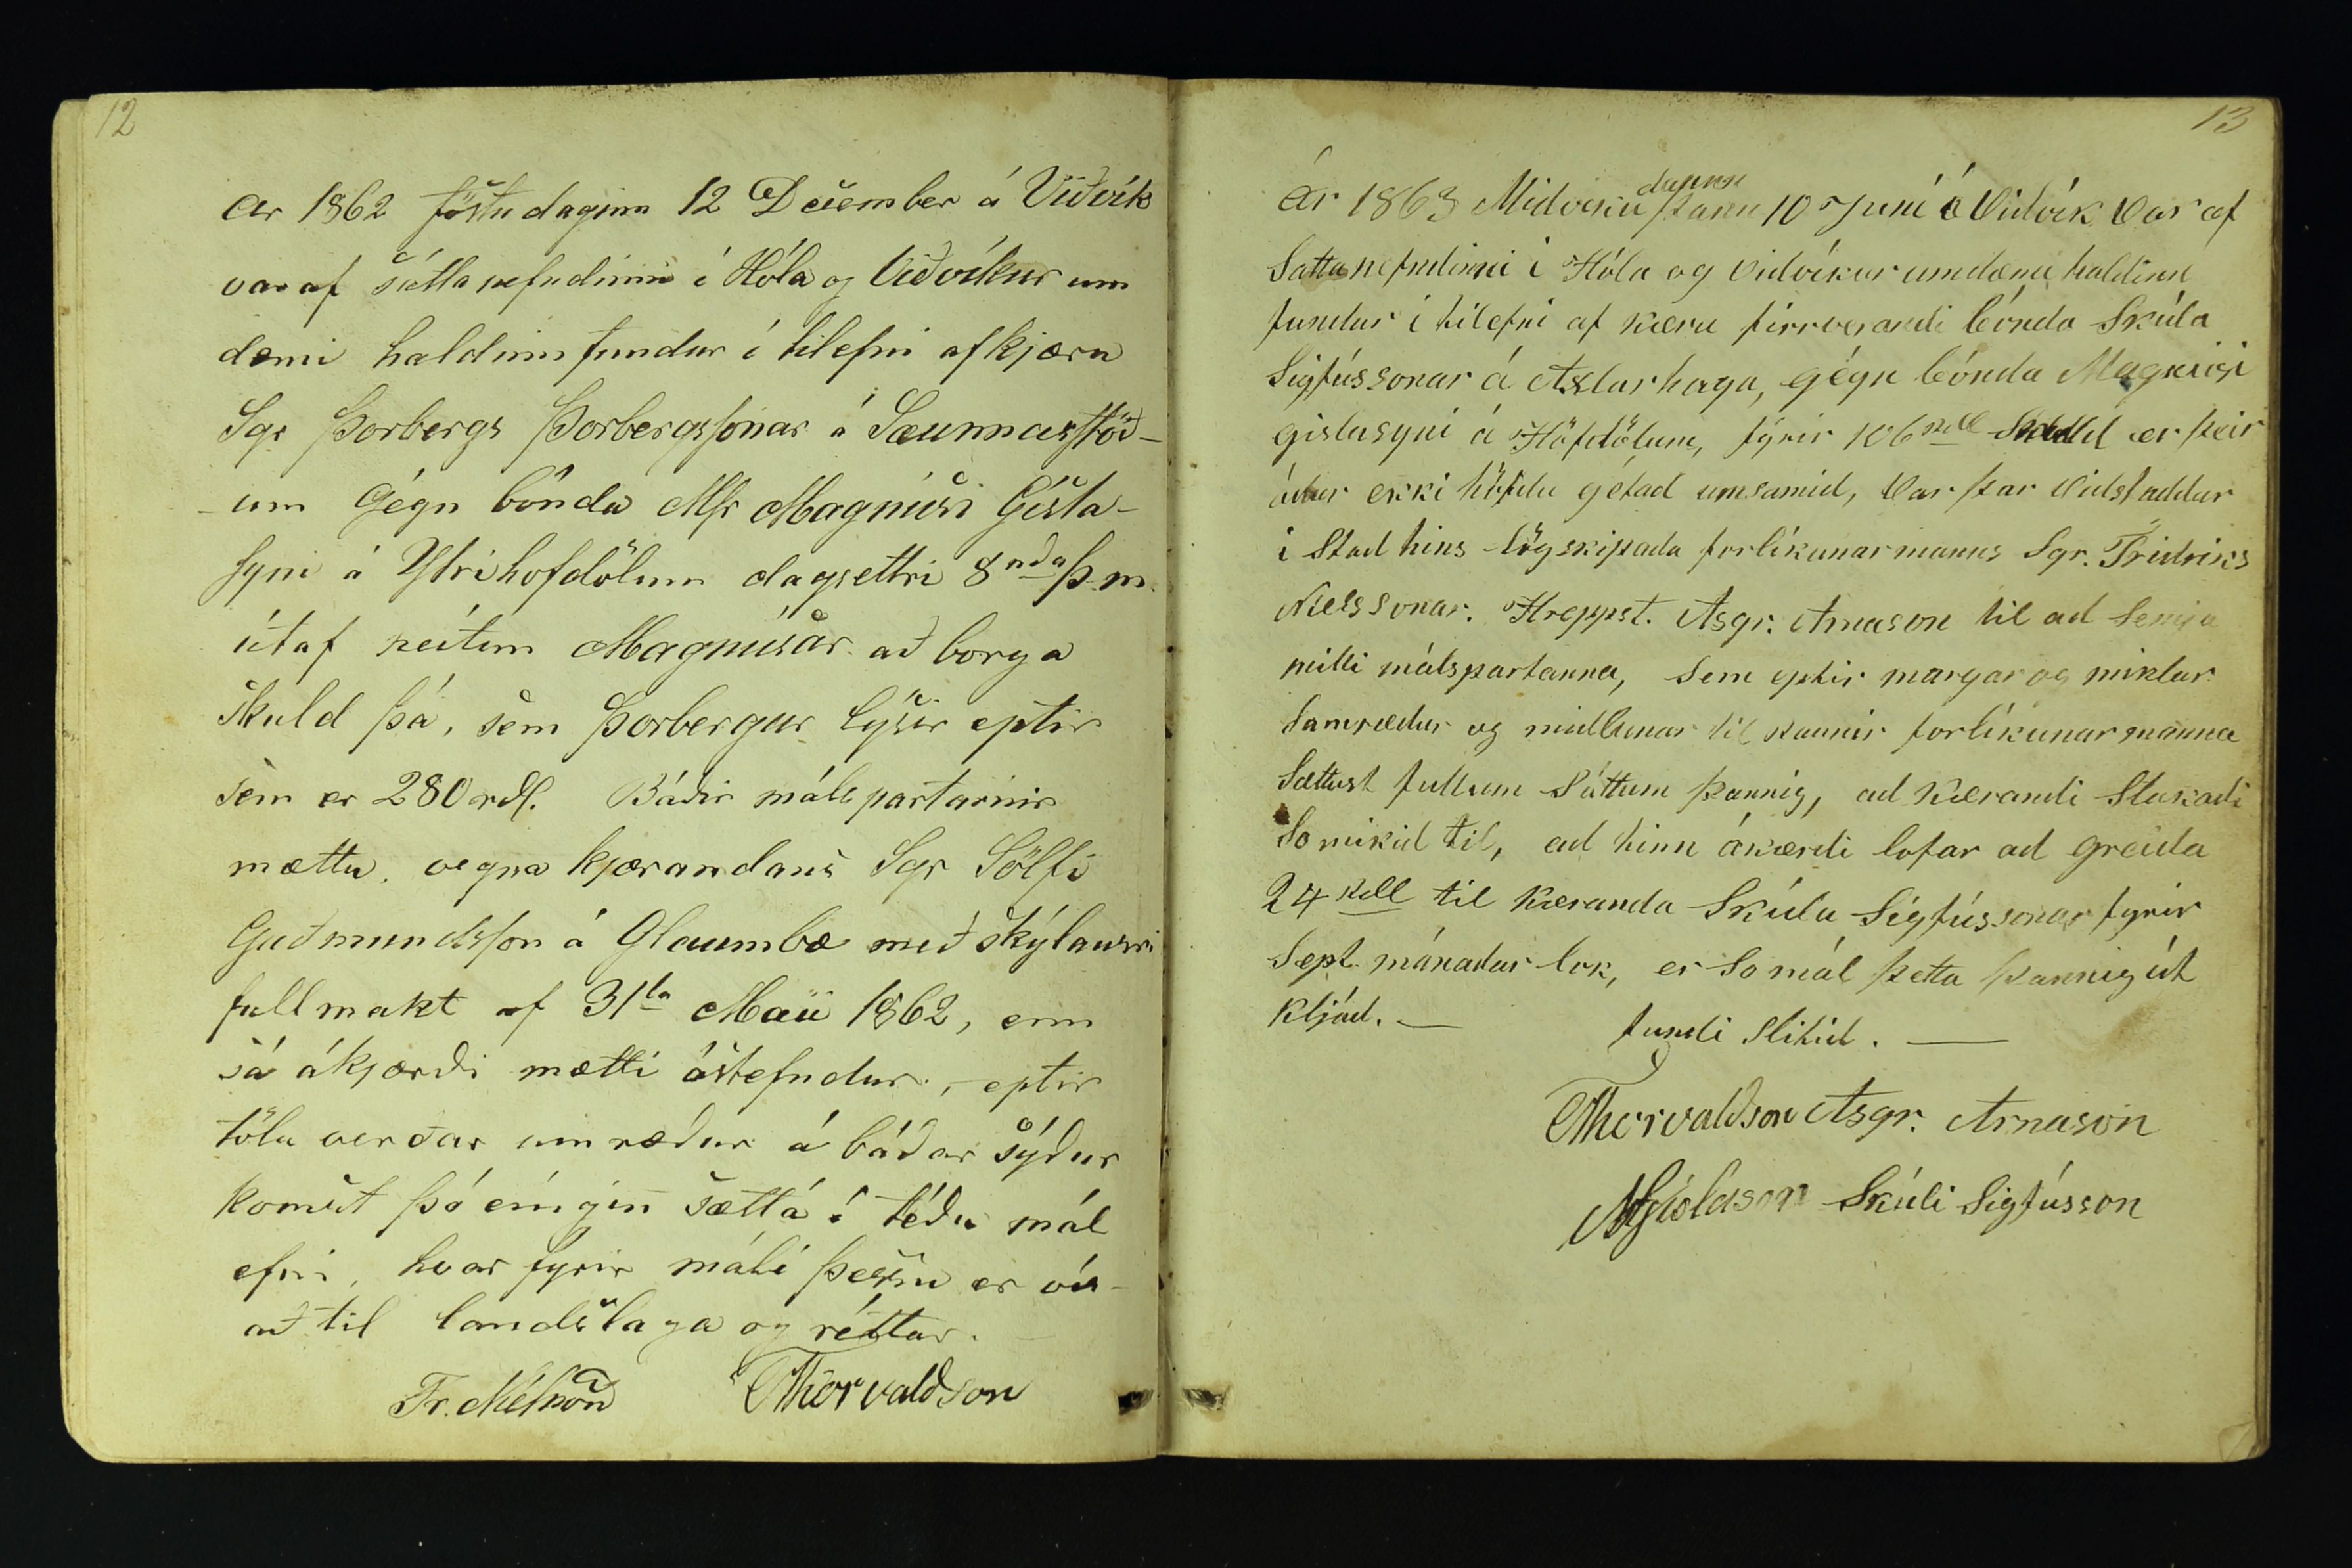 12
Ar 1862 föstudaginn 12 December á Viðvík
var af sáttanefndinni í Hóla og Viðvíkur um
dæmi haldinn fundur í tilefni af kjæru
Sgr Þorbergs Þorbergssonar á Sæunnarstöð-
-um gégn bónda Mr Magnúsi Gísla-
syni á Ytrihofdölum dagsettri 8nda þ.m.
útaf neitun Magnúsar að borga
skuld þá, sem Þorbergur lýsir eptir
sem er 280 rdl. Báðir málspartarnir
mættu. vegna kjærandans Sgr Sölfi
Guðmundsson á Glaumbæ með skýlausri
fullmakt af 31ta Maii 1862, enn
sá ákjærði mætti ástefndur, - eptir
tölu verðar umræður á báðar sýður
komst þó eingin sætt á í téðu mál
efni, hvar fyrir máli þessu er vís-
að til landslaga og réttar.
Fr. Nielsson Thorvaldson
13
Ár 1863 Midviku daginn þann 10 Juni á Vidvik Var af
Sattanefndinni i Hóla og vidvikur umdæmi haldinn
fundur i tilefni af kæru firrverandi bónda Skúla
Sigfússonar á Axlarhaga, gégn bónda Magnúsi
gislasyni á Höfdölum, fýrir 106 rdll Skuld er þeir
ádur ekki höfdu gétad umsamid, Var þar vidstaddur
i Stad hins lögskipada forlikunarmanns Sgr. Fridriks
Nielssonar. Hreppst. Asgr. Arnason til ad Semja
milli málspartanna, Sem eptir margar og miklar
Samrædur og midlunar til raunir forlikunarmanna
Sættust fullum Sáttum þannig, ad Kærandi Slakadi
So mikid til, ad hinn ákærdi lofar ad greida
24 rdll til Kæranda Skúla Sigfússonar fyrir
Sept. mánadar lok, er So mál þetta þannig út
kljád. — fundi Slitid. —
Thorvaldson Asgr. Arnason
MGislason Skúli Sigfússon